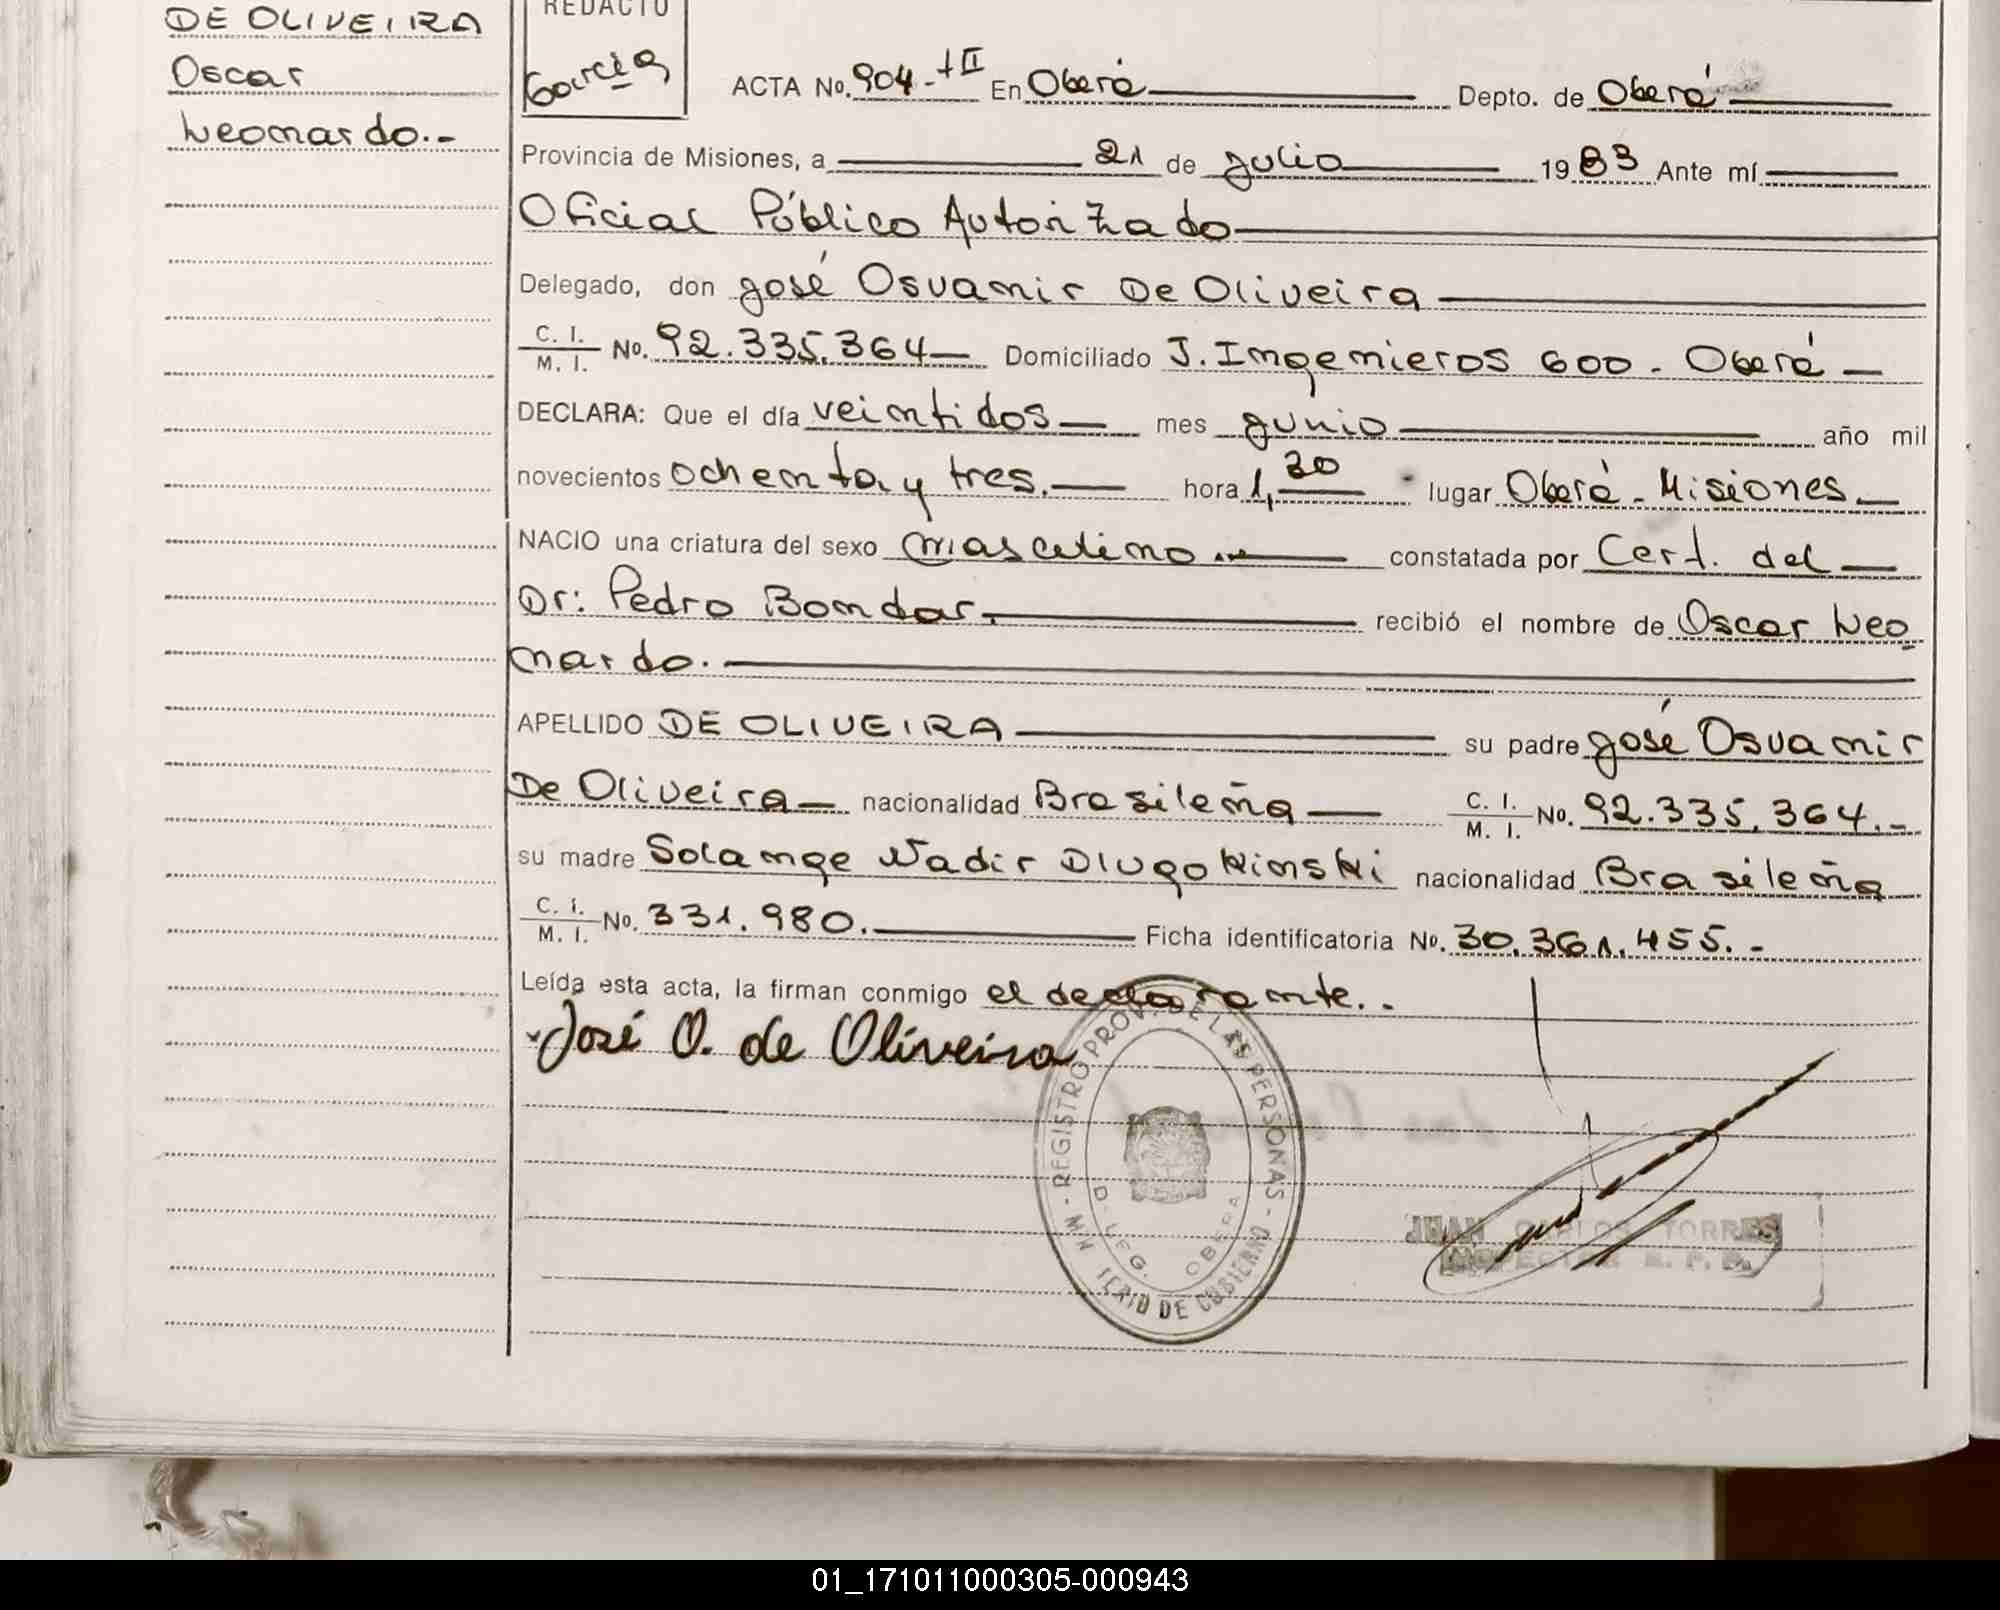 DE OLIVEIRA
Oscar
Leonardo.-
REDACTO
García
ACTA No. 904-tII En Oberá Depto. de Oberá
Provincia de Misiones, a 21 de julio 1983 Ante mí
Oficial Público Autorizado
Delegado, don José Osvanir De Oliveira
C. I. / M. I. No. 92.335.364 Domiciliado J. Ingenieros 600 - Oberá
DECLARA: Que el día veintidos mes junio año mil
novecientos ochenta y tres. hora 1,30 lugar Oberá - Misiones
NACIO una criatura del sexo masculino constatada por Cert. del
Dr: Pedro Bondar. recibió el nombre de Oscar Leo
nardo.
APELLIDO DE OLIVEIRA su padre José Osvanir
De Oliveira nacionalidad Brasileña C. I. / M. I. No. 92.335.364.-
su madre Solange Nadir Dlugokinski nacionalidad Brasileña
C. I. / M. I. No. 331.980. Ficha identificatoria No. 30.361.455.-
Leída esta acta, la firman conmigo el declarante..
José O. de Oliveira
REGISTRO PROV. DE LAS PERSONAS - MINISTERIO DE GOBIERNO -
DELEG. OBERA
JUAN CARLOS TORRES
01_171011000305-000943